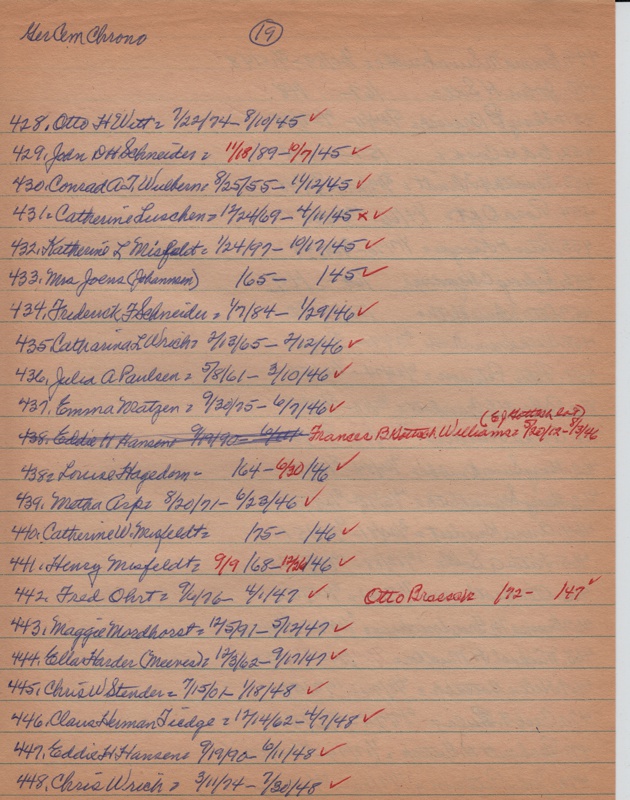 Ger Cem Chrono 19
428. Otto H Witt = 7/22/74 - 8/10/45 ✓
429. John D H Schneider = 11/18/89 - 10/7/45 ✓
430. Conrad A.T. Wulbern = 8/25/55 - 11/12/45 ✓
431. Catherine Luschen = 12/24/69 - 4/11/45 x ✓
432. Katherine L Misfeldt = 1/24/97 - 10/17/45 ✓
433. Mrs Joens (Johannsen) /65 - /45 ✓
434. Frederick F Schneider = 1/7/84 - 1/29/46 ✓
435 Catharina L Wrich = 2/13/65 - 2/12/46 ✓
436. Julia A Paulsen = 5/8/61 - 3/10/46 ✓
437. Emma Matzen = 9/30/75 - 6/7/46 ✓
438. Eddie H Hansen = 9/19/90 - Frances B Williams = 5/20/12 - 8/3/46
438 = Louise Hagedorn = /64 - 6/30/46 ✓
439. Metha Arp = 8/20/71 - 6/23/46 ✓
440. Catherine W. Misfeldt = /75 - /46 ✓
441. Henry Misfeldt = 9/9/68 - 12/26/46 ✓
442. Fred Ohrt = 9/6/76 - 4/1/47 ✓ Otto /72 - /47 ✓
443. Maggie Mordhorst = 12/5/91 - 5/12/47 ✓
444. Ella Harder (Meeves) = 12/3/62 - 9/17/47 ✓
445. Chris W Stender = 7/15/01 - 1/18/48 ✓
446. Claus Herman Tiedge = 12/14/62 - 4/7/48 ✓
447. Eddie H. Hansen = 9/19/90 - 6/11/48 ✓
448. Chris Wrich = 3/11/74 - 7/30/48 ✓